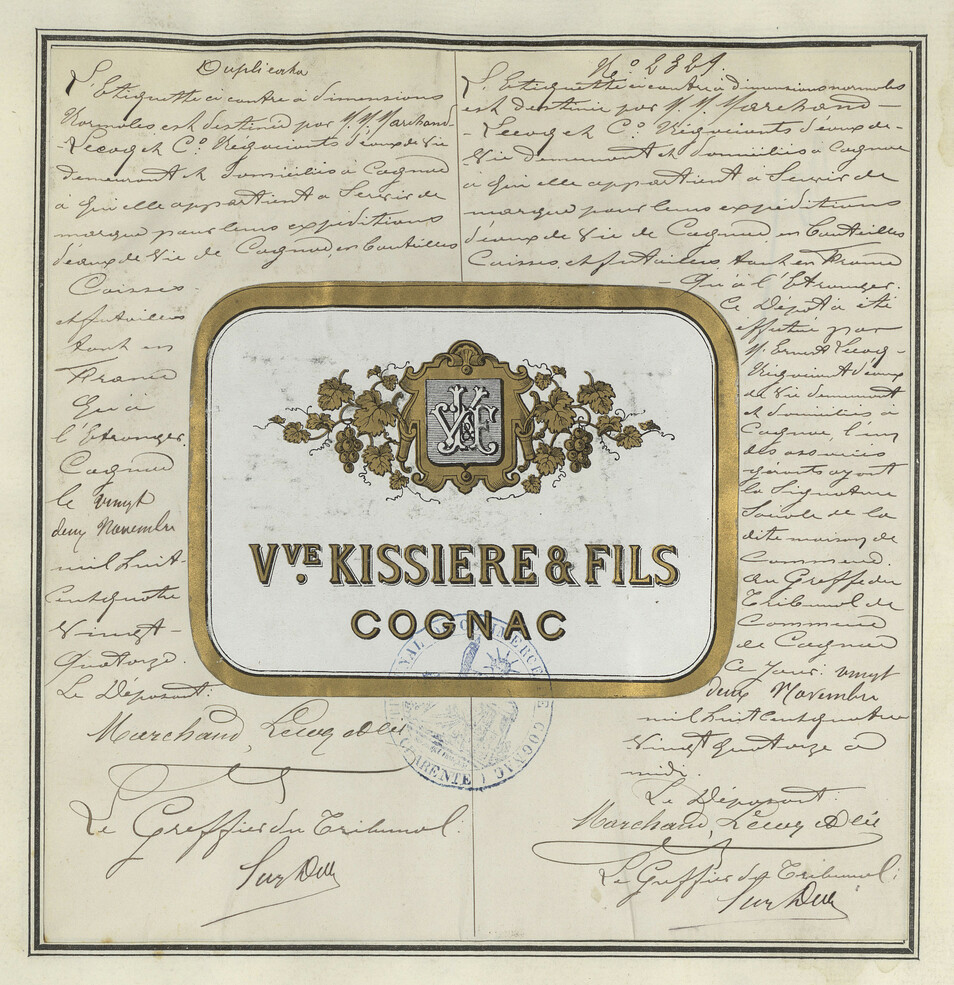 Duplicata
L'Etiquette ci contre à dimensions
Normales est destinée par M.M. Marchand-
-Lecoq et Cº Négociants d'eaux de Vie
demeurant et domiciliés à Cognac
à qui elle appartient à Servir de
marque pour leurs expéditions
d'eaux de Vie de Cognac, en bouteilles
Caisses
et futailles
tant en
France
qu'à
l'Etranger.
Cognac
le vingt
deux Novembre
mil huit-
cent quatre
Vingt-
Quatorze.
Le Déposant:
Marchand, Lecoq & Cie
Le Greffier du Tribunal.
Nº 2329.
L'Etiquette ci contre à dimensions normales
est destinée par M.M. Marchand-
-Lecoq et Cº Négociants d'eaux de-
Vie demeurant et domiciliés à Cognac
à qui elle appartient à Servir de
marque pour leurs expéditions
d'eaux de Vie de Cognac, en bouteilles
Caisses, et futailles, tant en France
- Qu'à l'Etranger.
Ce Dépôt a été
effectué par
M. Ernest Lecoq-
Négociant d'eaux
de Vie demeurant
et domicilié à
Cognac, l'un
des associés
gérants ayant
la Signature
Sociale de la
dite maison de
Commerce.
au Greffe du
Tribunal de
Commerce
de Cognac
Ce Jour: vingt
deux Novembre
mil huit cent quatre
Vingt quatorze à
midi.
Le Déposant:
Marchand, Lecoq & Cie
Le Greffier du Tribunal:
VK&F
VVE KISSIERE & FILS
COGNAC
TRIBUNAL DE COMMERCE DE COGNAC (CHARENTE)